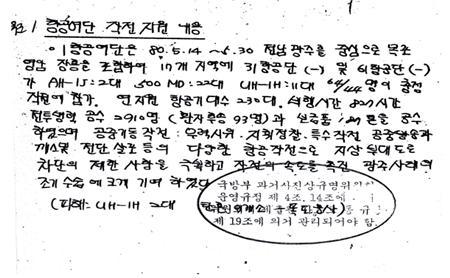 1 항공여단 작전 지원 내용
○ 1항공여단은 80. 5. 14 ~ 5. 30 전남 광주를 중심으로 목포
영암 장흥을 포함하여 17개 지역에 31항공단 (-) 및 61항공단 (-)
가 AH-1S: 2대 500 MD: 22대 UH-1H: 11대 명이 출정
작전에 참가. 연지원 항공기대수 230대. 비행시간 827시간
전투병력 공수 2910명 (환자후송 93명) 과 공수
하였으며 공중기동작전: 무력시위. 지휘정찰. 특수작전 공중방송과
개스 및 전단 살포 등의 다양한 항공작전으로 지상부대 도로
차단의 제한사항을 극복하고 작전의 속도를 촉진 광주사태의
조기 수습에 크게 기여 하였다
(피해: UH-1H 2대
국방부 과거사진상규명위원회
운영규정 제 4조, 14조에
제 19조에 의거 관리되어야 함.